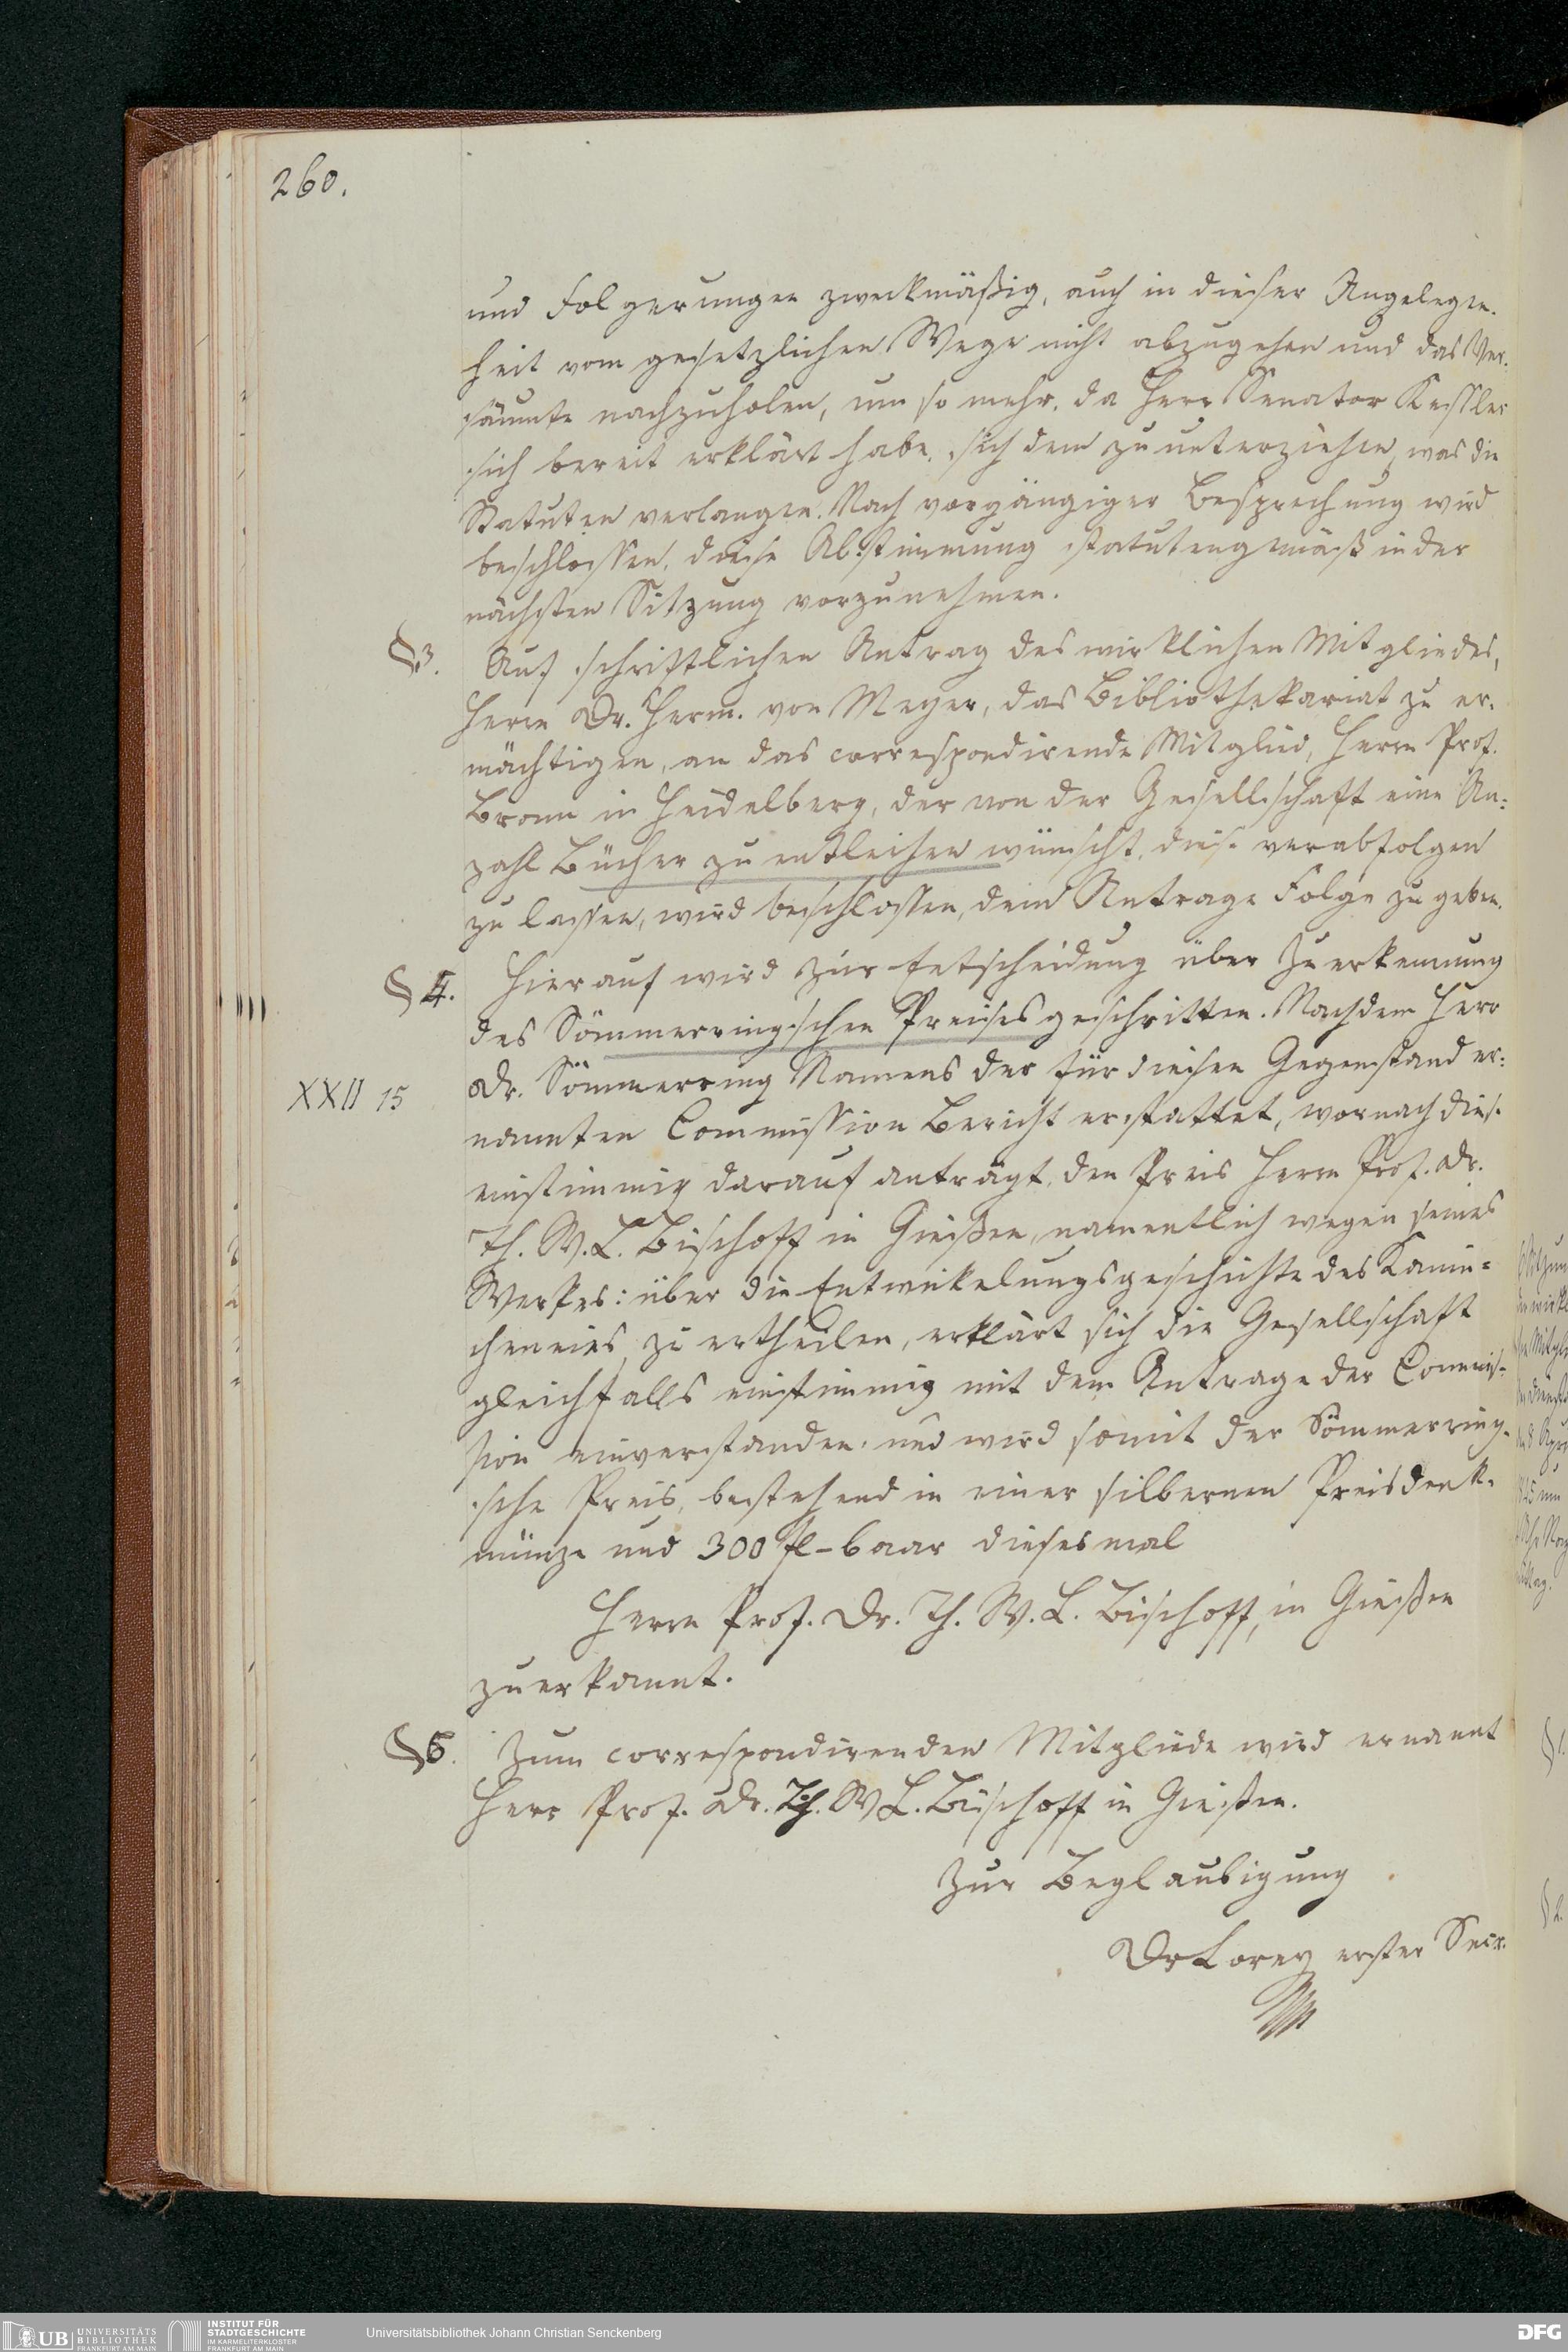 260.
und Folgerungen zweckmäßig, auch in dieser Angelegen-
heit vom gesetzlichen Wege nicht abzugehen und das Ver-
säumte nachzuholen, um so mehr, da Herr Senator Kessler
sich bereit erklärt habe, sich dem zu unterziehen, was die
Statuten verlangen. Nach vorgängiger Besprechung wird
beschlossen, diese Abstimmung statutengemäß in der
nächsten Sitzung vorzunehmen.
§.3. Auf schriftlichen Antrag des wirklichen Mitgliedes,
Herrn Dr. Herm. von Meyer, das Bibliothekariat zu er-
mächtigen, an das correspondirende Mitglied, Herrn Prof.
Bronn in Heidelberg, der von der Gesellschaft eine An-
zahl Bücher zu entleihen wünscht, diese verabfolgen
zu lassen, wird beschlossen, dem Antrage Folge zu geben.
§ 4. Hierauf wird zur Entscheidung über Zuerkennung
des Sömmerringschen Preises geschritten. Nachdem Herr
XXII 15 Dr. Sömmerring Namens der für diesen Gegenstand er-
nannten Commission Bericht erstattet, wornach diese
einstimmig darauf anträgt, den Preis Herrn Prof. Dr.
Th. W. L. Bischoff in Gießen, namentlich wegen seines
Werkes: über die Entwickelungsgeschichte des Kanin-
cheneies, zu ertheilen, erklärt sich die Gesellschaft
gleichfalls einstimmig mit dem Antrage der Commis-
sion einverstanden, und wird somit der Sömmerring-
sche Preis, bestehend in einer silbernen Preisdenk-
münze und 300 fl- baar diesesmal
Herrn Prof. Dr. Th. W. L. Bischoff, in Gießen
zuerkannt.
§5. Zum correspondirenden Mitgliede wird ernannt
Herr Prof. Dr. Th. W L. Bischoff in Gießen.
Zur Beglaubigung
Dr Lorey erster Secr.
UB UNIVERSITÄTS
BIBLIOTHEK
FRANKFURT AM MAIN
INSTITUT FÜR
STADTGESCHICHTE
IM KARMELITERKLOSTER
FRANKFURT AM MAIN
Universitätsbibliothek Johann Christian Senckenberg
DFG